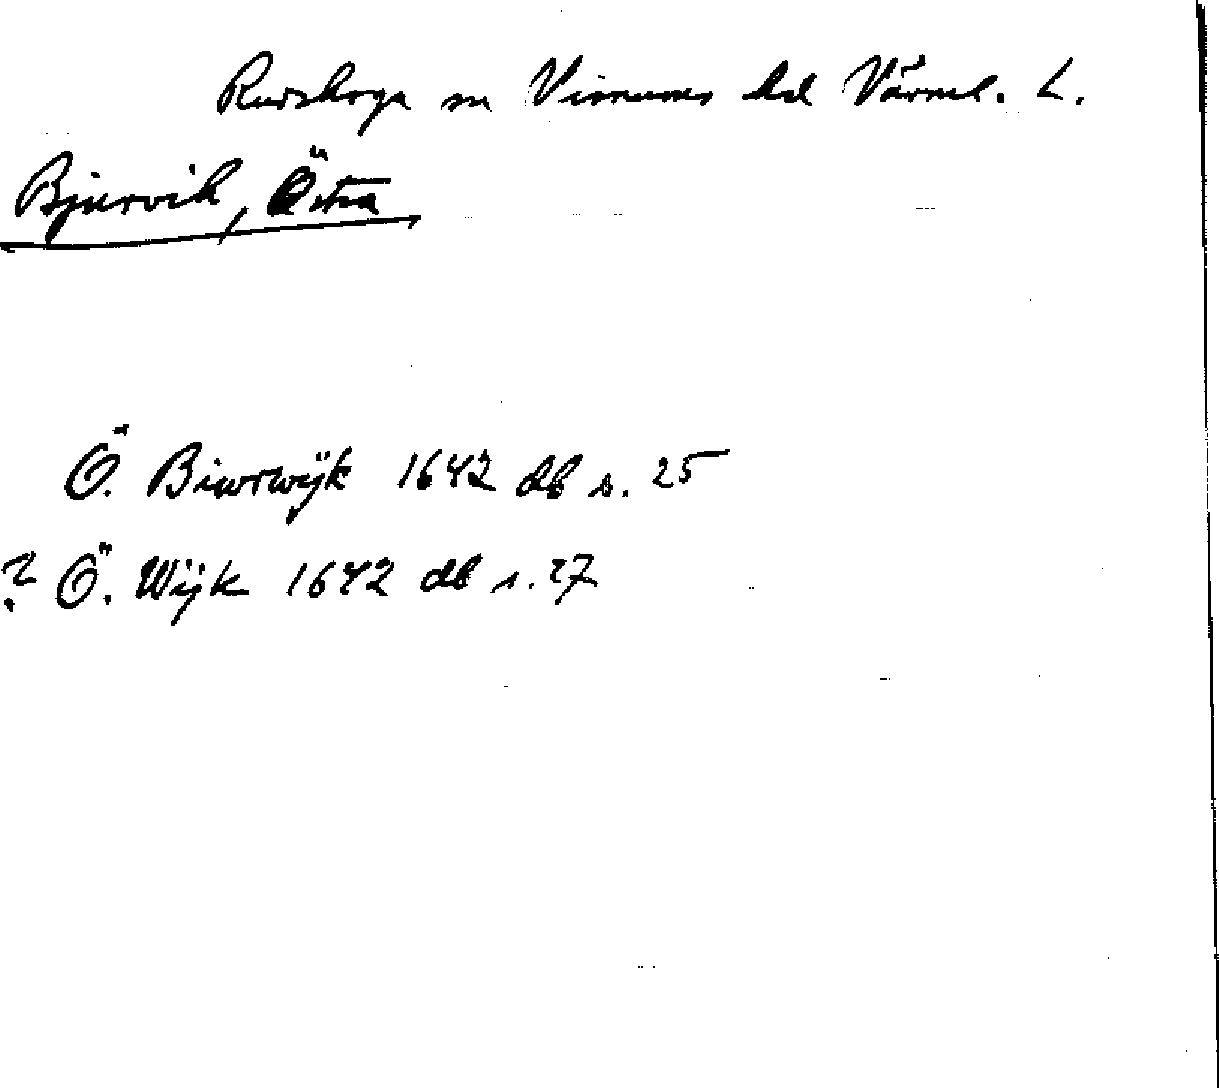 Rudskoga sn Visnums hd Värml. L.
Bjurvik, Östra
Ö. Biurwÿk 1642 db s. 25
? Ö. Wÿk 1642 db s. 27